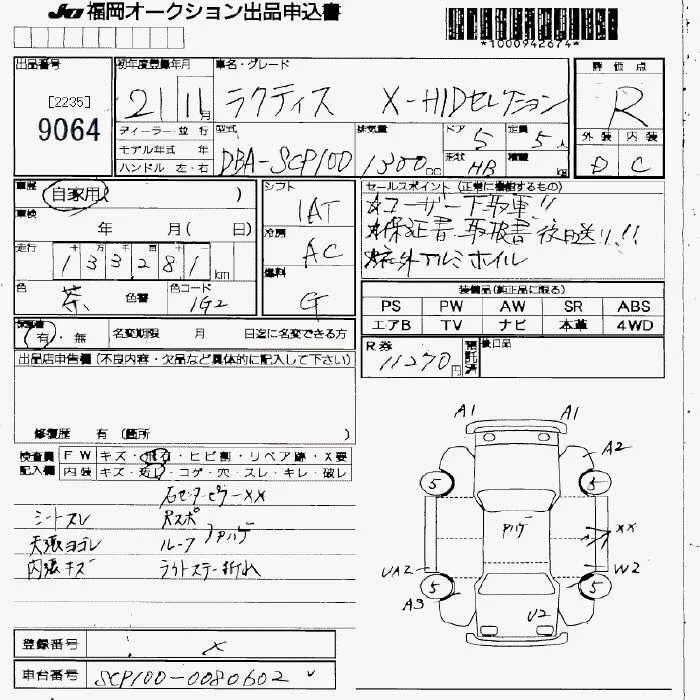 JU 福岡オークション出品申込書
*1000942674*
出品番号
[2235]
9064
初年度登録年月
21 11月
車名・グレード
ラクティス X-HIDセレクション
評価点
R
外装 内装
D C
ディーラー・並行
モデル年式 年
ハンドル 左・右
型式
DBA-SCP100
排気量
1300cc
ドア
5
形状
HB
定員
5人
積載
kg
車歴
自家用( )
車検
年 月( 日)
走行
十万千百十一
133281km
色
茶
色替
色コード
1G2
シフト
IAT
冷房
AC
燃料
G
セールスポイント (正常に機能するもの)
☆ユーザー下取車!!
☆保証書・取扱書 後日送り!!
☆社外アルミホイル
装備品(純正品に限る)
PS PW AW SR ABS
エアB TV ナビ 本革 4WD
有・無
名変期限 月 日迄に名変できる方
R券
11270円
預託済
後日品
出品店申告欄 (不良内容・欠品など具体的に記入して下さい)
修復歴 有 (箇所 )
検査員記入欄
FW キズ・飛石・ヒビ割・リペア跡・X要
内装 キズ・汚レ・コゲ・穴・スレ・キレ・破レ
右センターピラーXX
シートスレ
Rスポ
天張ヨゴレ
ルーフ
アハゲ
内張キズ
ラジオステー折れ
A1 A1
A2
5 5
アハゲ
XX
UA2
W2
5 5
A3
U2
登録番号
X
車台番号 SCP100-0080602